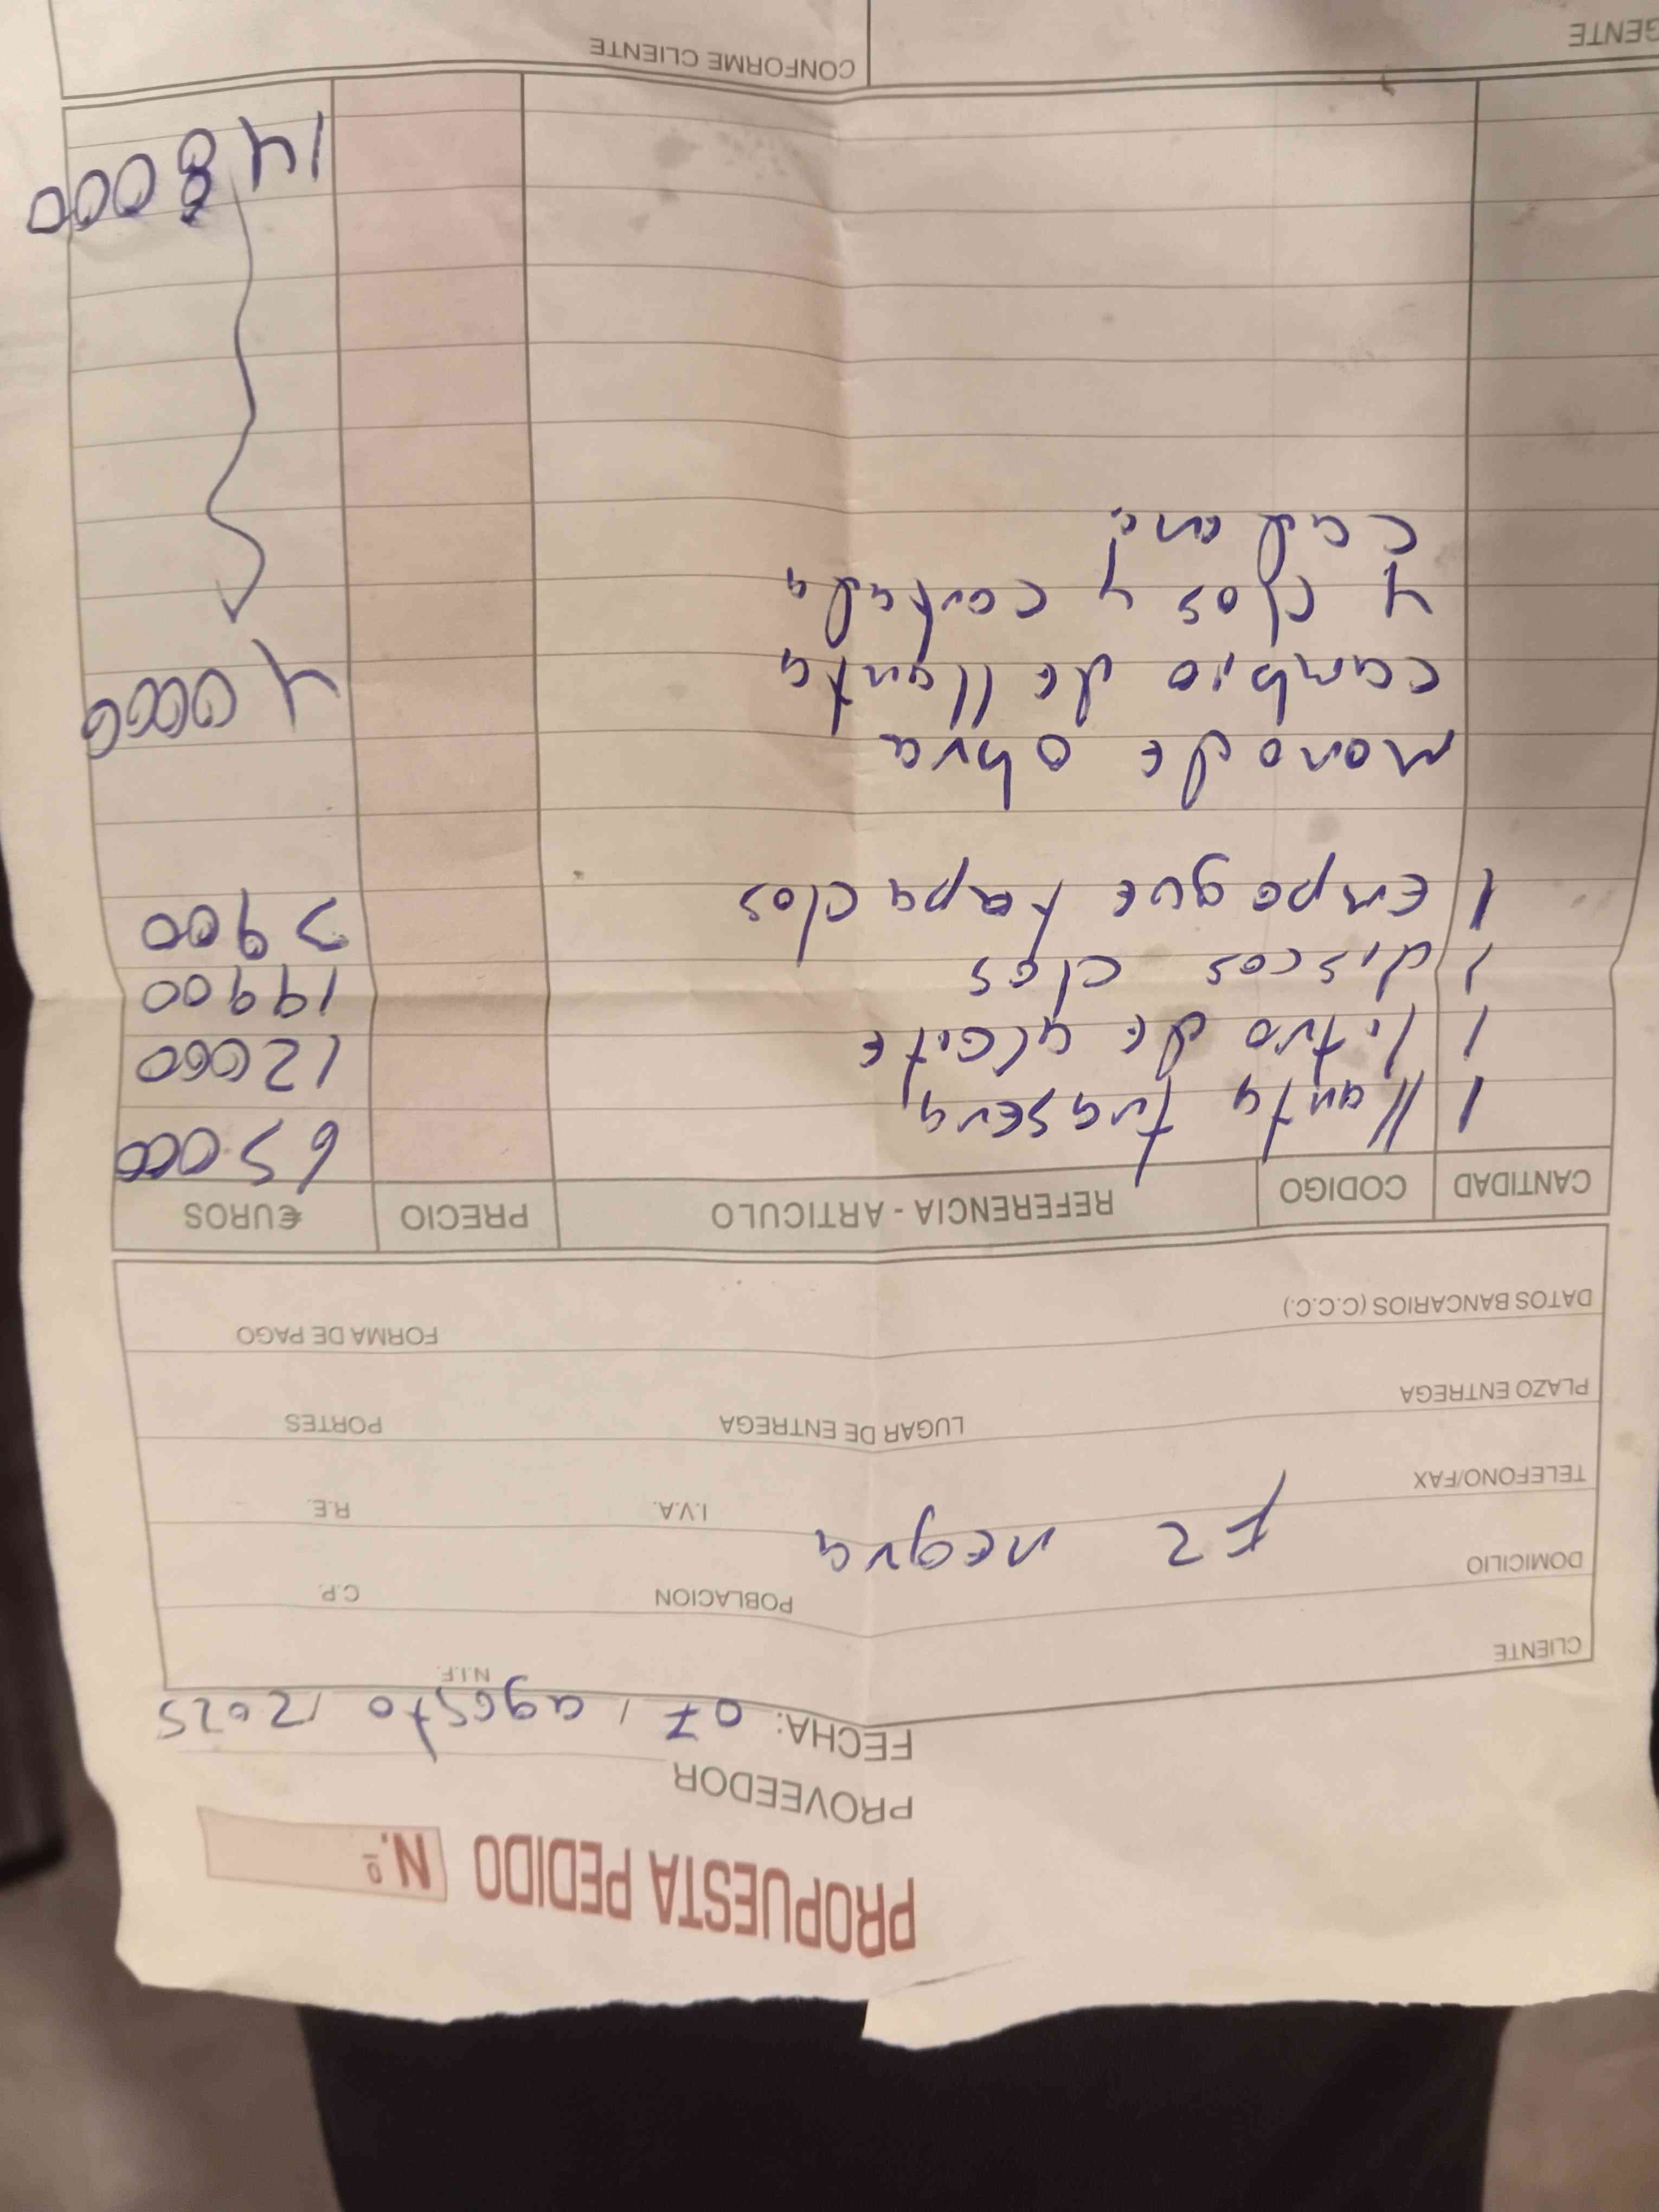 PROPUESTA PEDIDO N.º
PROVEEDOR
FECHA: 07 / agosto / 2025
CLIENTE N.I.F.
DOMICILIO POBLACION C.P.
FZ negra
TELEFONO/FAX I.V.A. R.E.
PLAZO ENTREGA LUGAR DE ENTREGA PORTES
DATOS BANCARIOS (C.C.C.) FORMA DE PAGO
CANTIDAD CODIGO REFERENCIA - ARTICULO PRECIO €UROS
1 llanta trasera 65000
1 litro de aceite 12000
1 discos clos 19900
1 Empaque tapa clos 3900
mono de obra 40000
cambio de llanta
y clos y cortada
cadena
148000
GENTE CONFORME CLIENTE